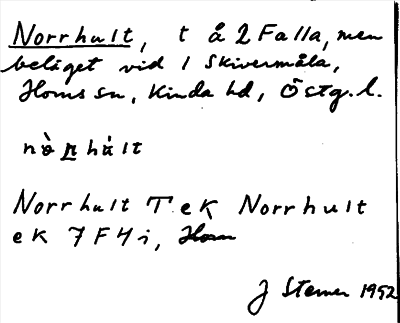 Norrhult, t å 2 Falla, men
beläget vid 1 Skivermåla,
Horns sn, Kinda hd, Östg. l.
nò̀r̲húlt
Norrhult T ek Norrhult
ek 7F4i, Horn
J Sterner 1952